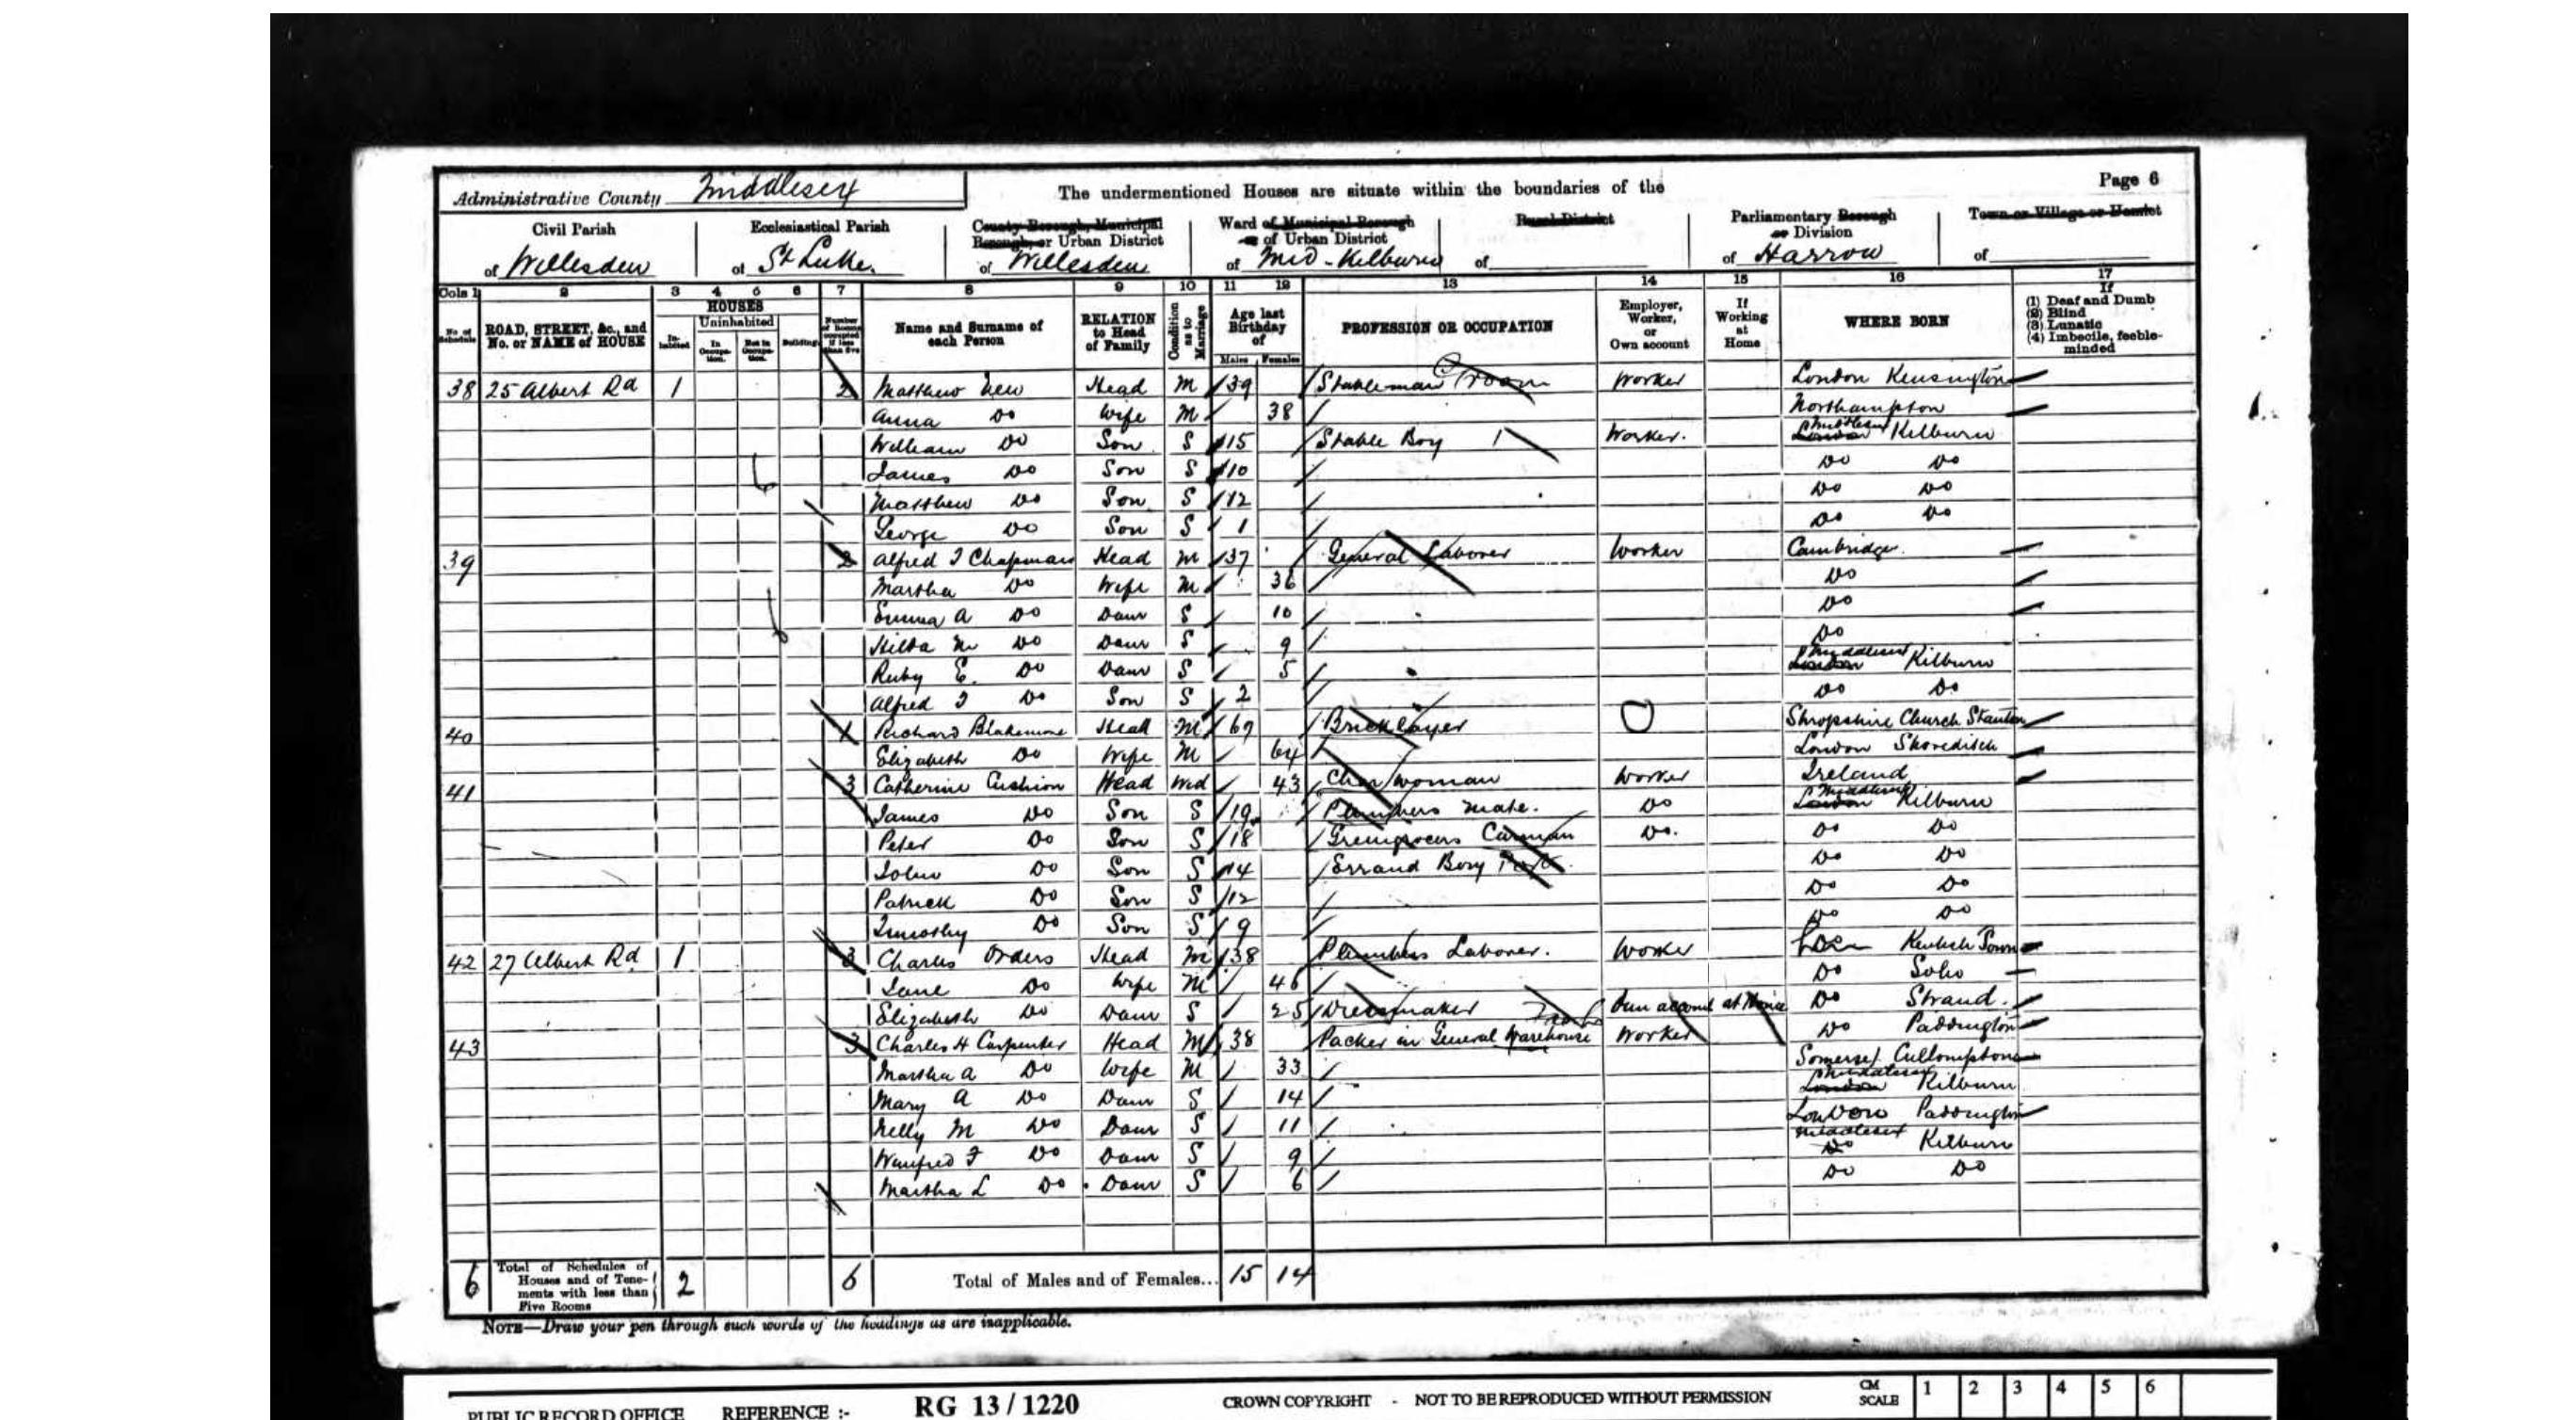 Administrative County Middlesex The undermentioned Houses are situate within the boundaries of the Page 6
Civil Parish of Willesden
Ecclesiastical Parish of St Luke.
County Borough, Municipal Borough, or Urban District of Willesden
Ward of Municipal Borough or of Urban District of Mid-Kilburn
Rural District of
Parliamentary Borough or Division of Harrow
Town or Village or Hamlet of
Cols 1 2 3 4 5 6 7 8 9 10 11 12 13 14 15 16 17
No. of Schedule
ROAD, STREET, &c., and No. or NAME of HOUSE
HOUSES
Inhabited
Uninhabited
In Occupation.
Not in Occupation.
Building
Number of Rooms occupied if less than five
Name and Surname of each Person
RELATION to Head of Family
Condition as to Marriage
Age last Birthday of
Males Females
PROFESSION OR OCCUPATION
Employer, Worker, or Own account
If Working at Home
WHERE BORN
If
(1) Deaf and Dumb
(2) Blind
(3) Lunatic
(4) Imbecile, feeble-minded
38 25 Albert Rd 1 2 Matthew New Head M 39 Stableman Groom Worker London Kensington
Anna Do Wife M 38 Northampton
William Do Son S 15 Stable Boy Worker. London Middlesex Kilburn
James Do Son S 10 Do Do
Matthew Do Son S 12 Do Do
George Do Son S 1 Do Do
39 2 Alfred J Chapman Head M 37 General Laborer Worker Cambridge.
Martha Do Wife M 36 Do
Emma A Do Daur S 10 Do
Hilda M Do Daur S 9 Do
Ruby E. Do Daur S 5 London Middlesex Kilburn
Alfred J Do Son S 2 Do Do
40 Richard Blakemore Head M 67 Bricklayer Shropshire Church Stanton
Elizabeth Do Wife M 64 London Shoreditch
41 3 Catherine Cushion Head Wd 43 Charwoman Worker Ireland
James Do Son S 19 Plumbers Mate. Do London Middlesex Kilburn
Peter Do Son S 18 Greengrocers Carman Do. Do Do
John Do Son S 14 Errand Boy Do Do
Patrick Do Son S 12 Do Do
Timothy Do Son S 9 Do Do
42 27 Albert Rd 1 3 Charles Orders Head M 38 Plumbers Laborer. Worker Kentish Town
Jane Do Wife M 46 Do Soho
Elizabeth Do Daur S 25 Dressmaker Own account at Home Do Strand.
43 3 Charles H Carpenter Head M 38 Packer in General Warehouse Worker Do Paddington
Martha A Do Wife M 33 Somerset Cullompton
Mary A Do Daur S 14 London Middlesex Kilburn
Nelly M Do Daur S 11 London Paddington
Winifred F Do Daur S 9 Do Middlesex Kilburn
Martha L Do Daur S 6 Do Do
6 Total of Schedules of Houses and of Tenements with less than Five Rooms 2 6 Total of Males and of Females... 15 14
NOTE—Draw your pen through such words of the headings as are inapplicable.
PUBLIC RECORD OFFICE REFERENCE :- RG 13 / 1220 CROWN COPYRIGHT - NOT TO BE REPRODUCED WITHOUT PERMISSION CM SCALE 1 2 3 4 5 6